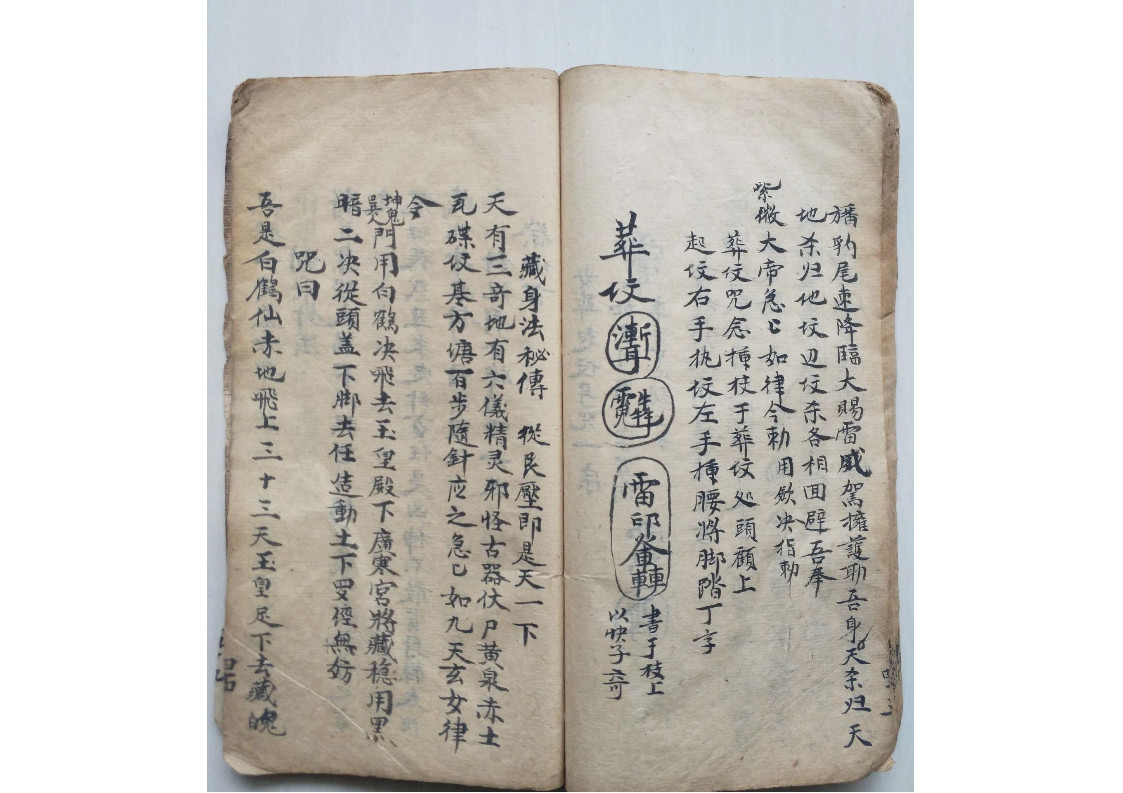 旛豹尾速降臨大賜雷威駕擁護助吾身天杀归天
地杀归地坟边坟杀各相回避吾奉
紫微大帝急〻如律令勅用欽决指勅
葬坟咒念 枝于葬坟处頭顧上
起坟右手执坟左手 腰將脚踏丁字
葬坟
雷印
書于枝上
以快子 奇
藏身法秘傳 從民壓即是天一下
天有三奇地有六儀精灵邪怪古器伏尸黄泉赤土
瓦磔坟基方塘百步隨針应之急〻如九天玄女律
令
坤鬼
門用白鶴决飛去玉皇殿下廣寒宮將藏穏用黑
暗二决從頭盖下脚去任造動土下 經無妨
咒曰
吾是白鶴仙赤地飛上三十三天玉皇足下去藏魂